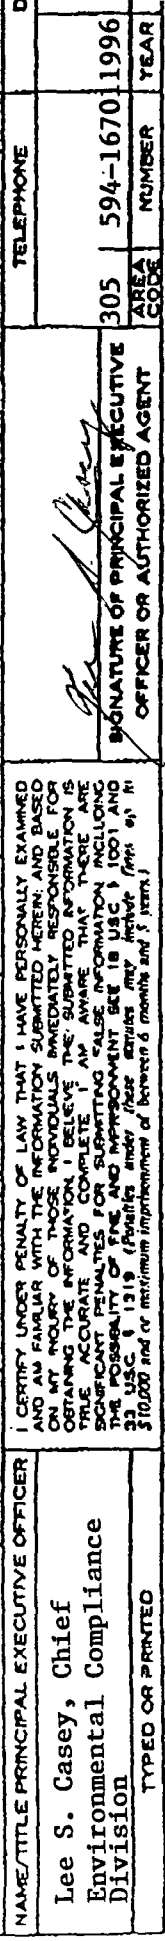 NAME/TITLE PRINCIPAL EXECUTIVE OFFICER
Lee S. Casey, Chief
Environmental Compliance
Division
TYPED OR PRINTED
I CERTIFY UNDER PENALTY OF LAW THAT I HAVE PERSONALLY EXAMINED
AND AM FAMILIAR WITH THE INFORMATION SUBMITTED HEREIN: AND BASED
ON MY INQUIRY OF THOSE INDIVIDUALS IMMEDIATELY RESPONSIBLE FOR
OBTAINING THE INFORMATION, I BELIEVE THE SUBMITTED INFORMATION IS
TRUE ACCURATE AND COMPLETE I AM AWARE THAT THERE ARE
SIGNIFICANT PENALTIES FOR SUBMITTING FALSE INFORMATION INCLUDING
THE POSSIBILITY OF FINE AND IMPRISONMENT SEE 18 USC § 1001 AND
33 USC § 1319 (Penalties under these statutes may include fines up to
$10,000 and or maximum imprisonment of between 6 months and 5 years.)
SIGNATURE OF PRINCIPAL EXECUTIVE
OFFICER OR AUTHORIZED AGENT
TELEPHONE
305 594-1670 1996
AREA
CODE NUMBER YEAR
D